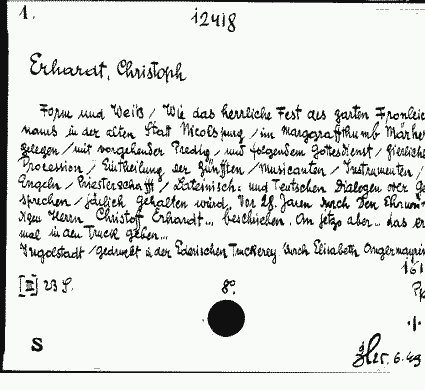 1.
12418
Erhardt, Christoph
Form und Weiß / Wie das herrliche Fest des zarten Fronleic
nams in der alten Statt Nicolspurg / im Marggraffthumb Märher
gelegen / mit vorgehender Predig / und folgendem Gottesdienst / zierliche
Procession / Eintheilung der Zünfften / Musicanten / Instrumenten /
Engeln / Priesterschafft / Lateinisch: und Teutschen Dialogen oder Ge
sprechen / järlich gehalten würd. Vor 28. Jaren durch den
Herrn Christoff Erhardt... beschrieben. An jetzo aber... das er
mal in den Truck geben...
Ingolstadt / gedruckt in der Ederischen Truckerey durch Elisabeth Angermayrin
161
[III] 23 S. 8°.
S
25.6.49